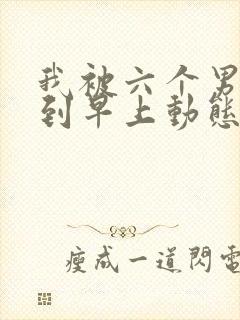 我被六个男
到早上動態
瘦成一道閃電